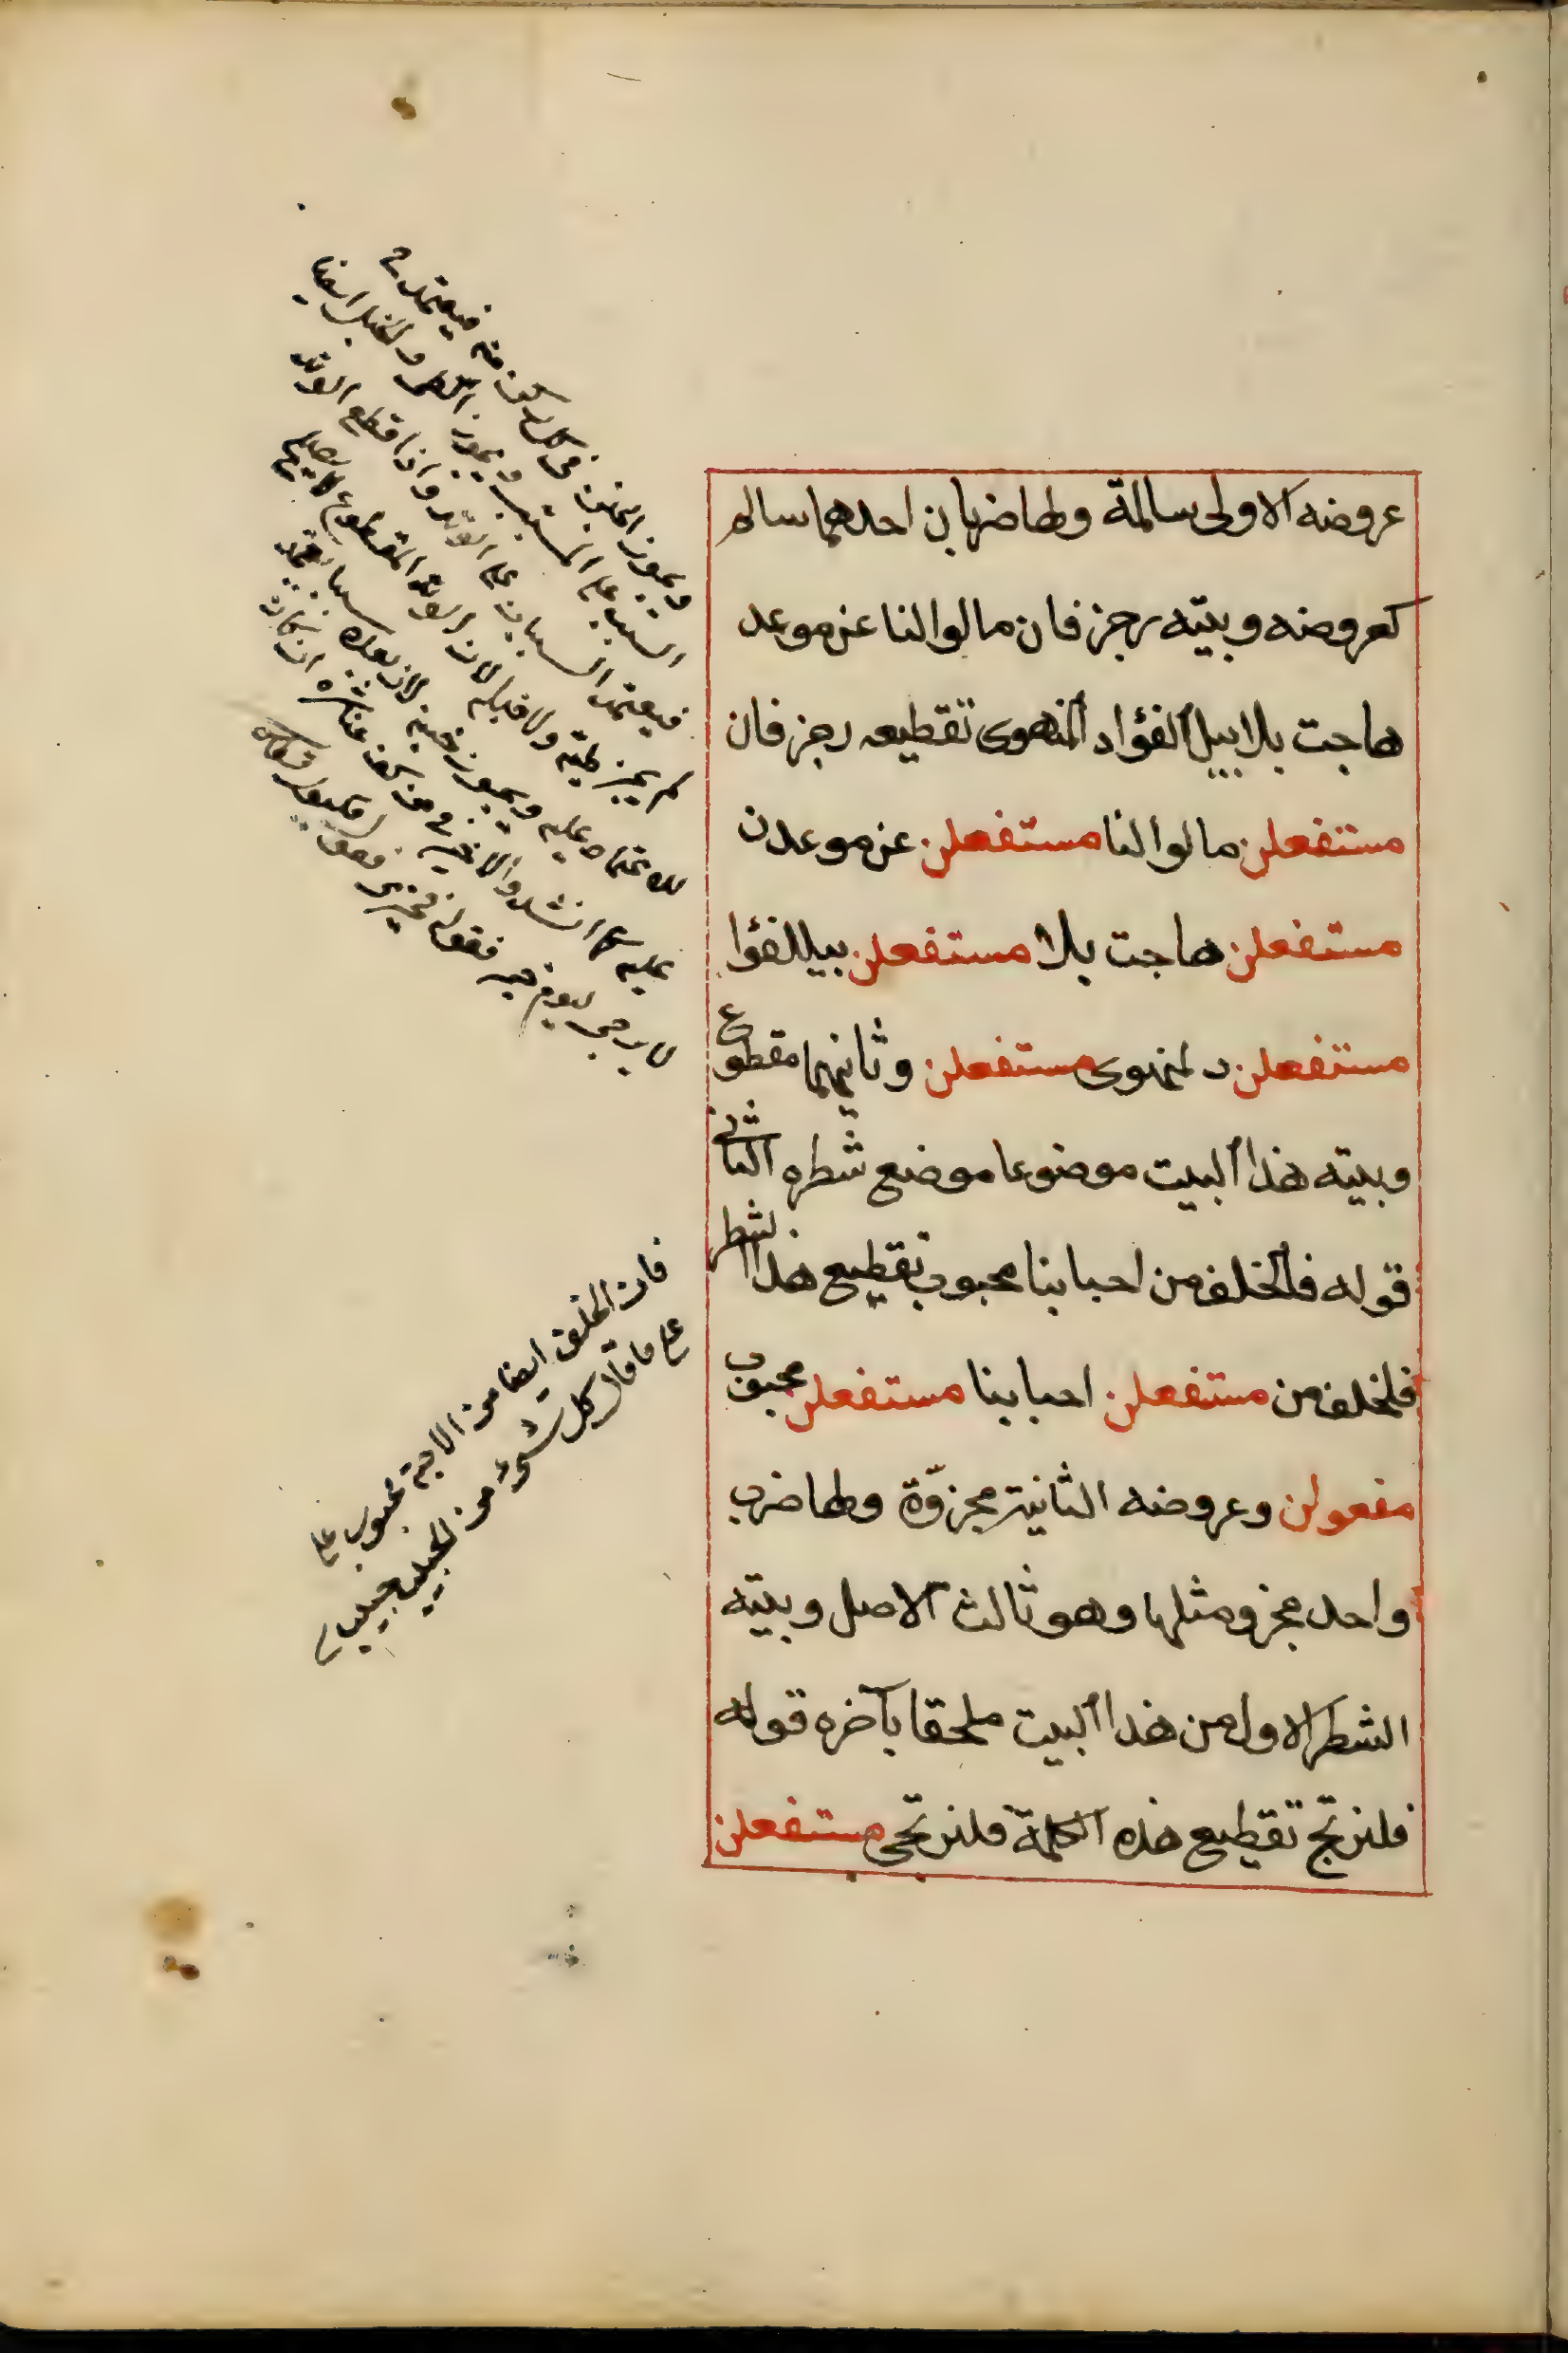 عروضه الاولى سالمة ولها ضربان احدهما سالم
كعروضه وبيته رجز فان مالوا لنا عن موعد
هاجت بلابيل الفؤاد المنهوى تقطيعه رجز فان
مستفعلن مالوا لنا مستفعلن عن موعدن
مستفعلن هاجت بلا مستفعلن بيللفؤا
مستفعلن د لمنهوى مستفعلن وثانيهما مقطوع
وبيته هذا البيت موضوعا موضع شطره الثانى
قوله فالخلف من احبابنا محبوب تقطيع هذا الشطر
فلخلف من مستفعلن احبابنا مستفعلن محبوب
مفعولن وعروضه الثانية مجزوّة ولها ضرب
واحد مجزو مثلها وهو ثالث الاصل وبيته
الشطر الاول من هذا البيت ملحقا بآخره قوله
فلنرتج تقطيع هذه الكلمة فلنرتجى مستفعلن
ويجوز الخبن فى كل ركن منه فيعتمد
السبب على السبب ويجوز الطى والخبل ايضا
فيعتمد السببان على الوتد واذا قطع الوتد
لم يجز طيه ولا خبله لان الوتد المقطوع لا يصلح
للاعتماد عليه ويجوز خبنه لان بعده سببا يعتمد
عليه كما انشدوا لاخير فى من كف عنا شره ان كان
لا يرجى ليوم خير
فان الخلف ايضا من الاحبة محبوب على
على ما قال كل شىء من الحبيب حبيب